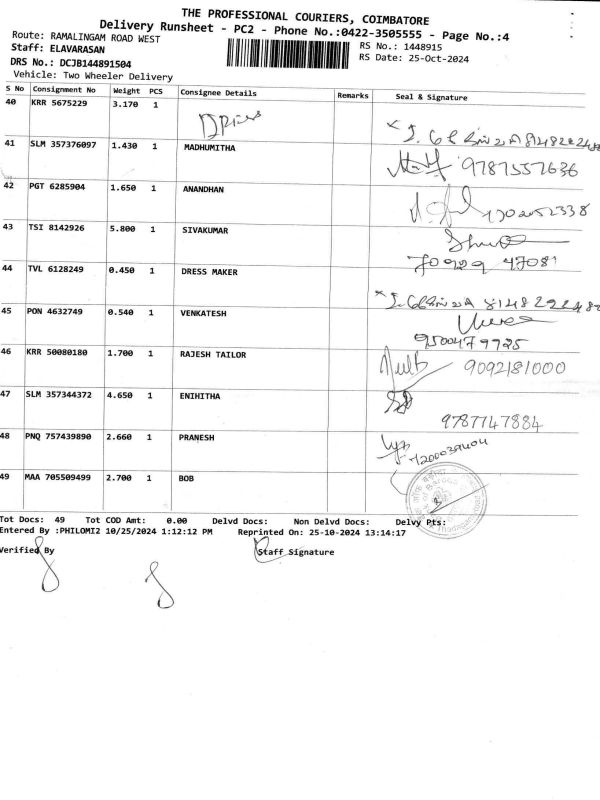 THE PROFESSIONAL COURIERS, COIMBATORE
Delivery Runsheet - PC2 - Phone No.:0422-3505555 - Page No.:4
Route: RAMALINGAM ROAD WEST
RS No.: 1448915
Staff: ELAVARASAN
RS Date: 25-Oct-2024
DRS No.: DCJB144891504
Vehicle: Two Wheeler Delivery
S No Consignment No Weight PCS Consignee Details Remarks Seal & Signature
40 KRR 5675229 3.170 1
41 SLM 357376097 1.430 1 MADHUMITHA 9787557636
42 PGT 6285904 1.650 1 ANANDHAN
43 TSI 8142926 5.800 1 SIVAKUMAR
70929 47081
44 TVL 6128249 0.450 1 DRESS MAKER
45 PON 4632749 0.540 1 VENKATESH
9500479725
46 KRR 50080180 1.700 1 RAJESH TAILOR 9092181000
47 SLM 357344372 4.650 1 ENIHITHA
9787747884
48 PNQ 757439890 2.660 1 PRANESH
49 MAA 705509499 2.700 1 BOB
Tot Docs: 49 Tot COD Amt: 0.00 Delvd Docs: Non Delvd Docs: Delvy Pts:
Entered By :PHILOMI2 10/25/2024 1:12:12 PM Reprinted On: 25-10-2024 13:14:17
Verified By Staff Signature